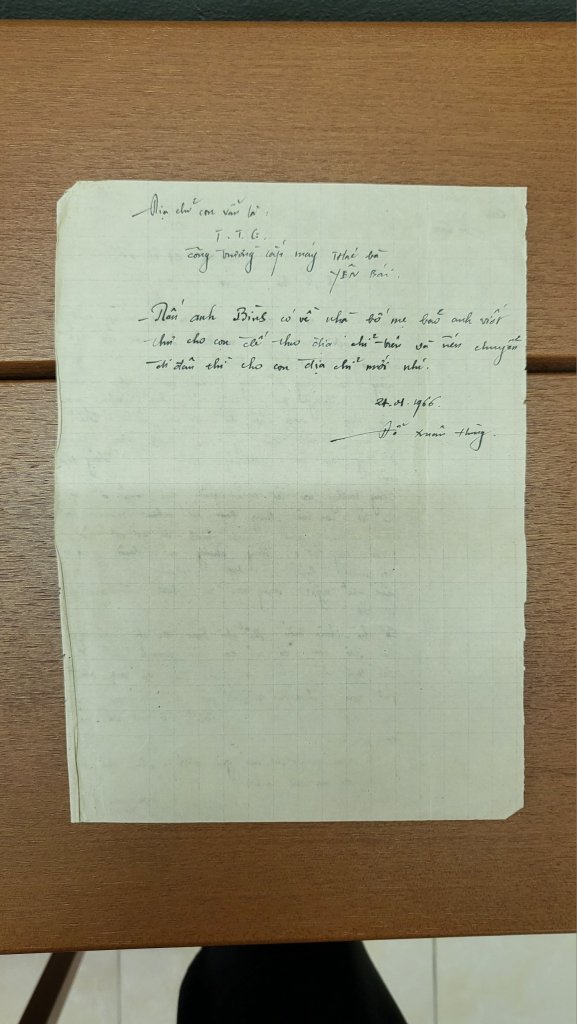 - Địa chỉ con vẫn là:
T.T.G.
công trường lắp máy Thác bà
YÊN Bái.
- Nếu anh Bình có về nhà bố mẹ bảo anh viết
thư cho con để theo địa chỉ trên và nếu chuyển
đi đâu thì cho con địa chỉ mới nhé.
1966.
Đỗ Xuân Hùng.